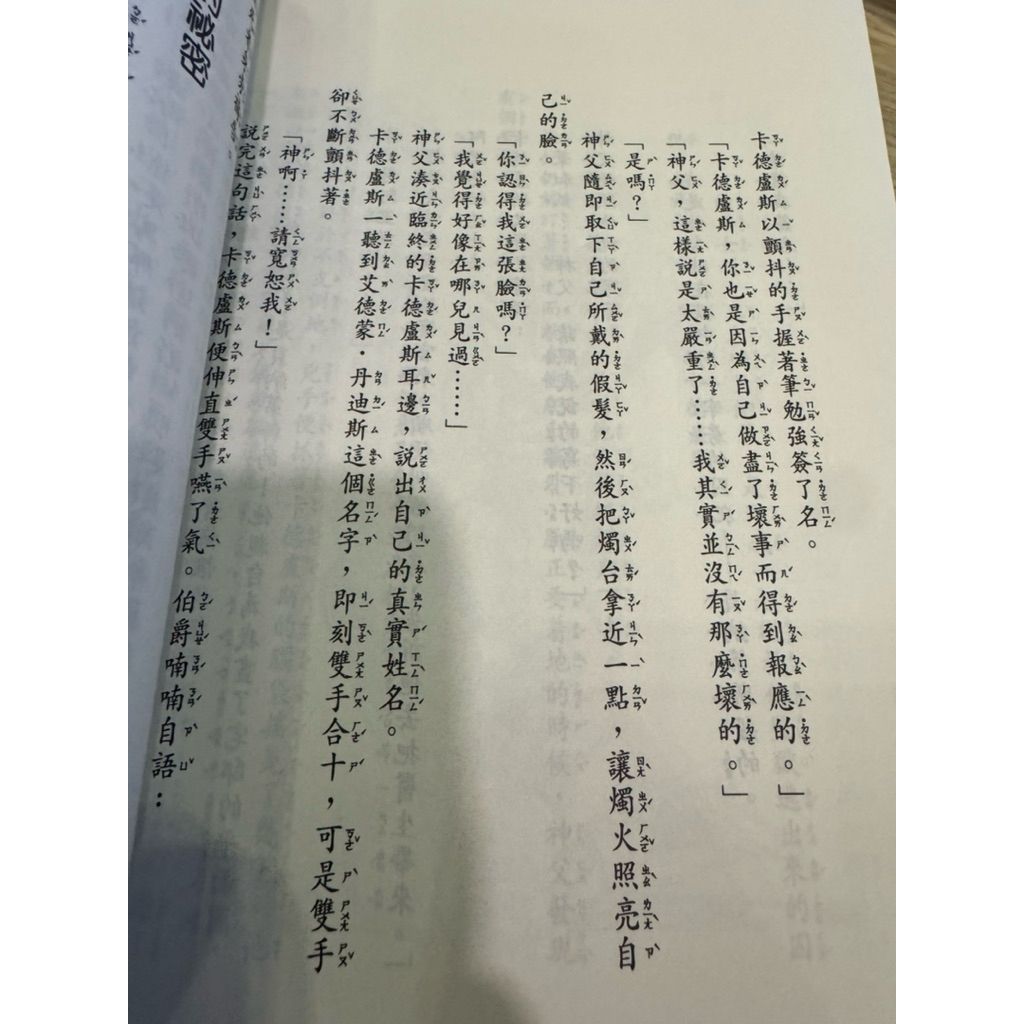 卡德盧斯以顫抖的手握著筆勉強簽了名。
「卡德盧斯，你也是因為自己做盡了壞事而得到報應的。」
「神父，這樣說是太嚴重了……我其實並沒有那麼壞的。」
「是嗎？」
神父隨即取下自己所戴的假髮，然後把燭台拿近一點，讓燭火照亮自
己的臉。
「你認得我這張臉嗎？」
「我覺得好像在哪兒見過……」
神父湊近臨終的卡德盧斯耳邊，說出自己的真實姓名。
卡德盧斯一聽到艾德蒙·丹迪斯這個名字，即刻雙手合十，可是雙手
卻不斷顫抖著。
「神啊……請寬恕我！」
說完這句話，卡德盧斯便伸直雙手嚥了氣。伯爵喃喃自語：